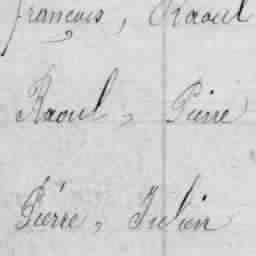 françois, Raoul
Raoul, Pierre
Pierre, Julien